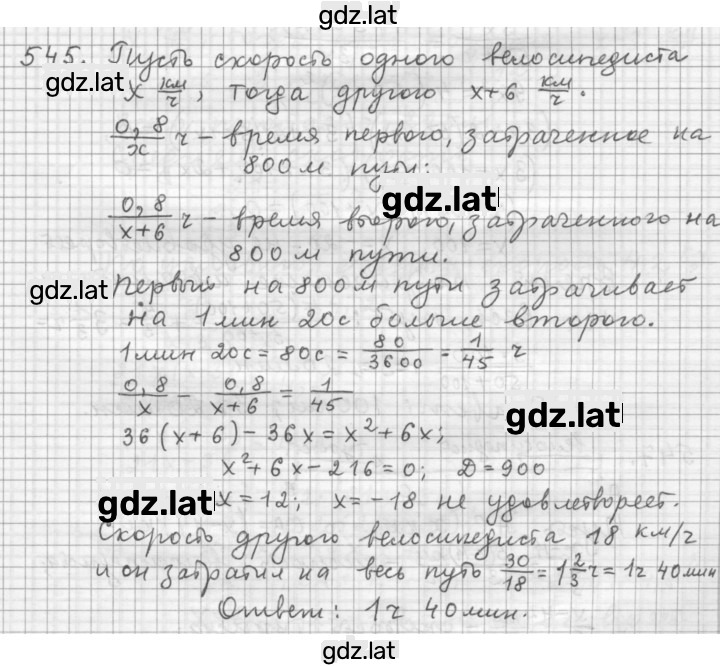 gdz.lat
545. Пусть скорость одного велосипедиста
gdz.lat
x км/ч, тогда другого x+6 км/ч.
0,8/x ч – время первого, затраченное на
800 м пути;
gdz.lat
0,8/x+6 ч – время второго, затраченного на
800 м пути.
gdz.lat
Первый на 800 м пути затрачивает
на 1 мин 20 с больше второго.
1 мин 20 с = 80 с = 80/3600 = 1/45 ч
0,8/x – 0,8/x+6 = 1/45
gdz.lat
36(x+6) – 36x = x² + 6x;
x² + 6x – 216 = 0; D = 900
gdz.lat
x = 12; x = –18 не удовлетворяет.
Скорость другого велосипедиста 18 км/ч
и он затратил на весь путь 30/18 = 1 2/3 ч = 1 ч 40 мин
Ответ: 1 ч 40 мин.
gdz.lat